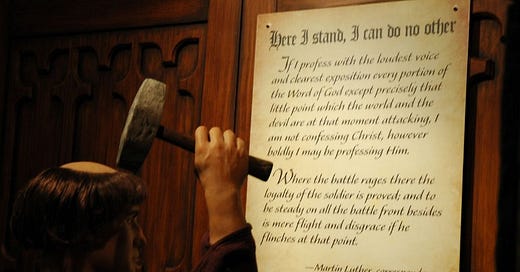 Here I stand, I can do no other
If I profess with the loudest voice
and clearest exposition every portion
of the Word of God except precisely that
little point which the world and the
devil are at that moment attacking, I
am not confessing Christ, however
boldly I may be professing Him.
Where the battle rages there the
loyalty of the soldier is proved; and to
be steady on all the battle front besides
is mere flight and disgrace if he
flinches at that point.
—Martin Luther,